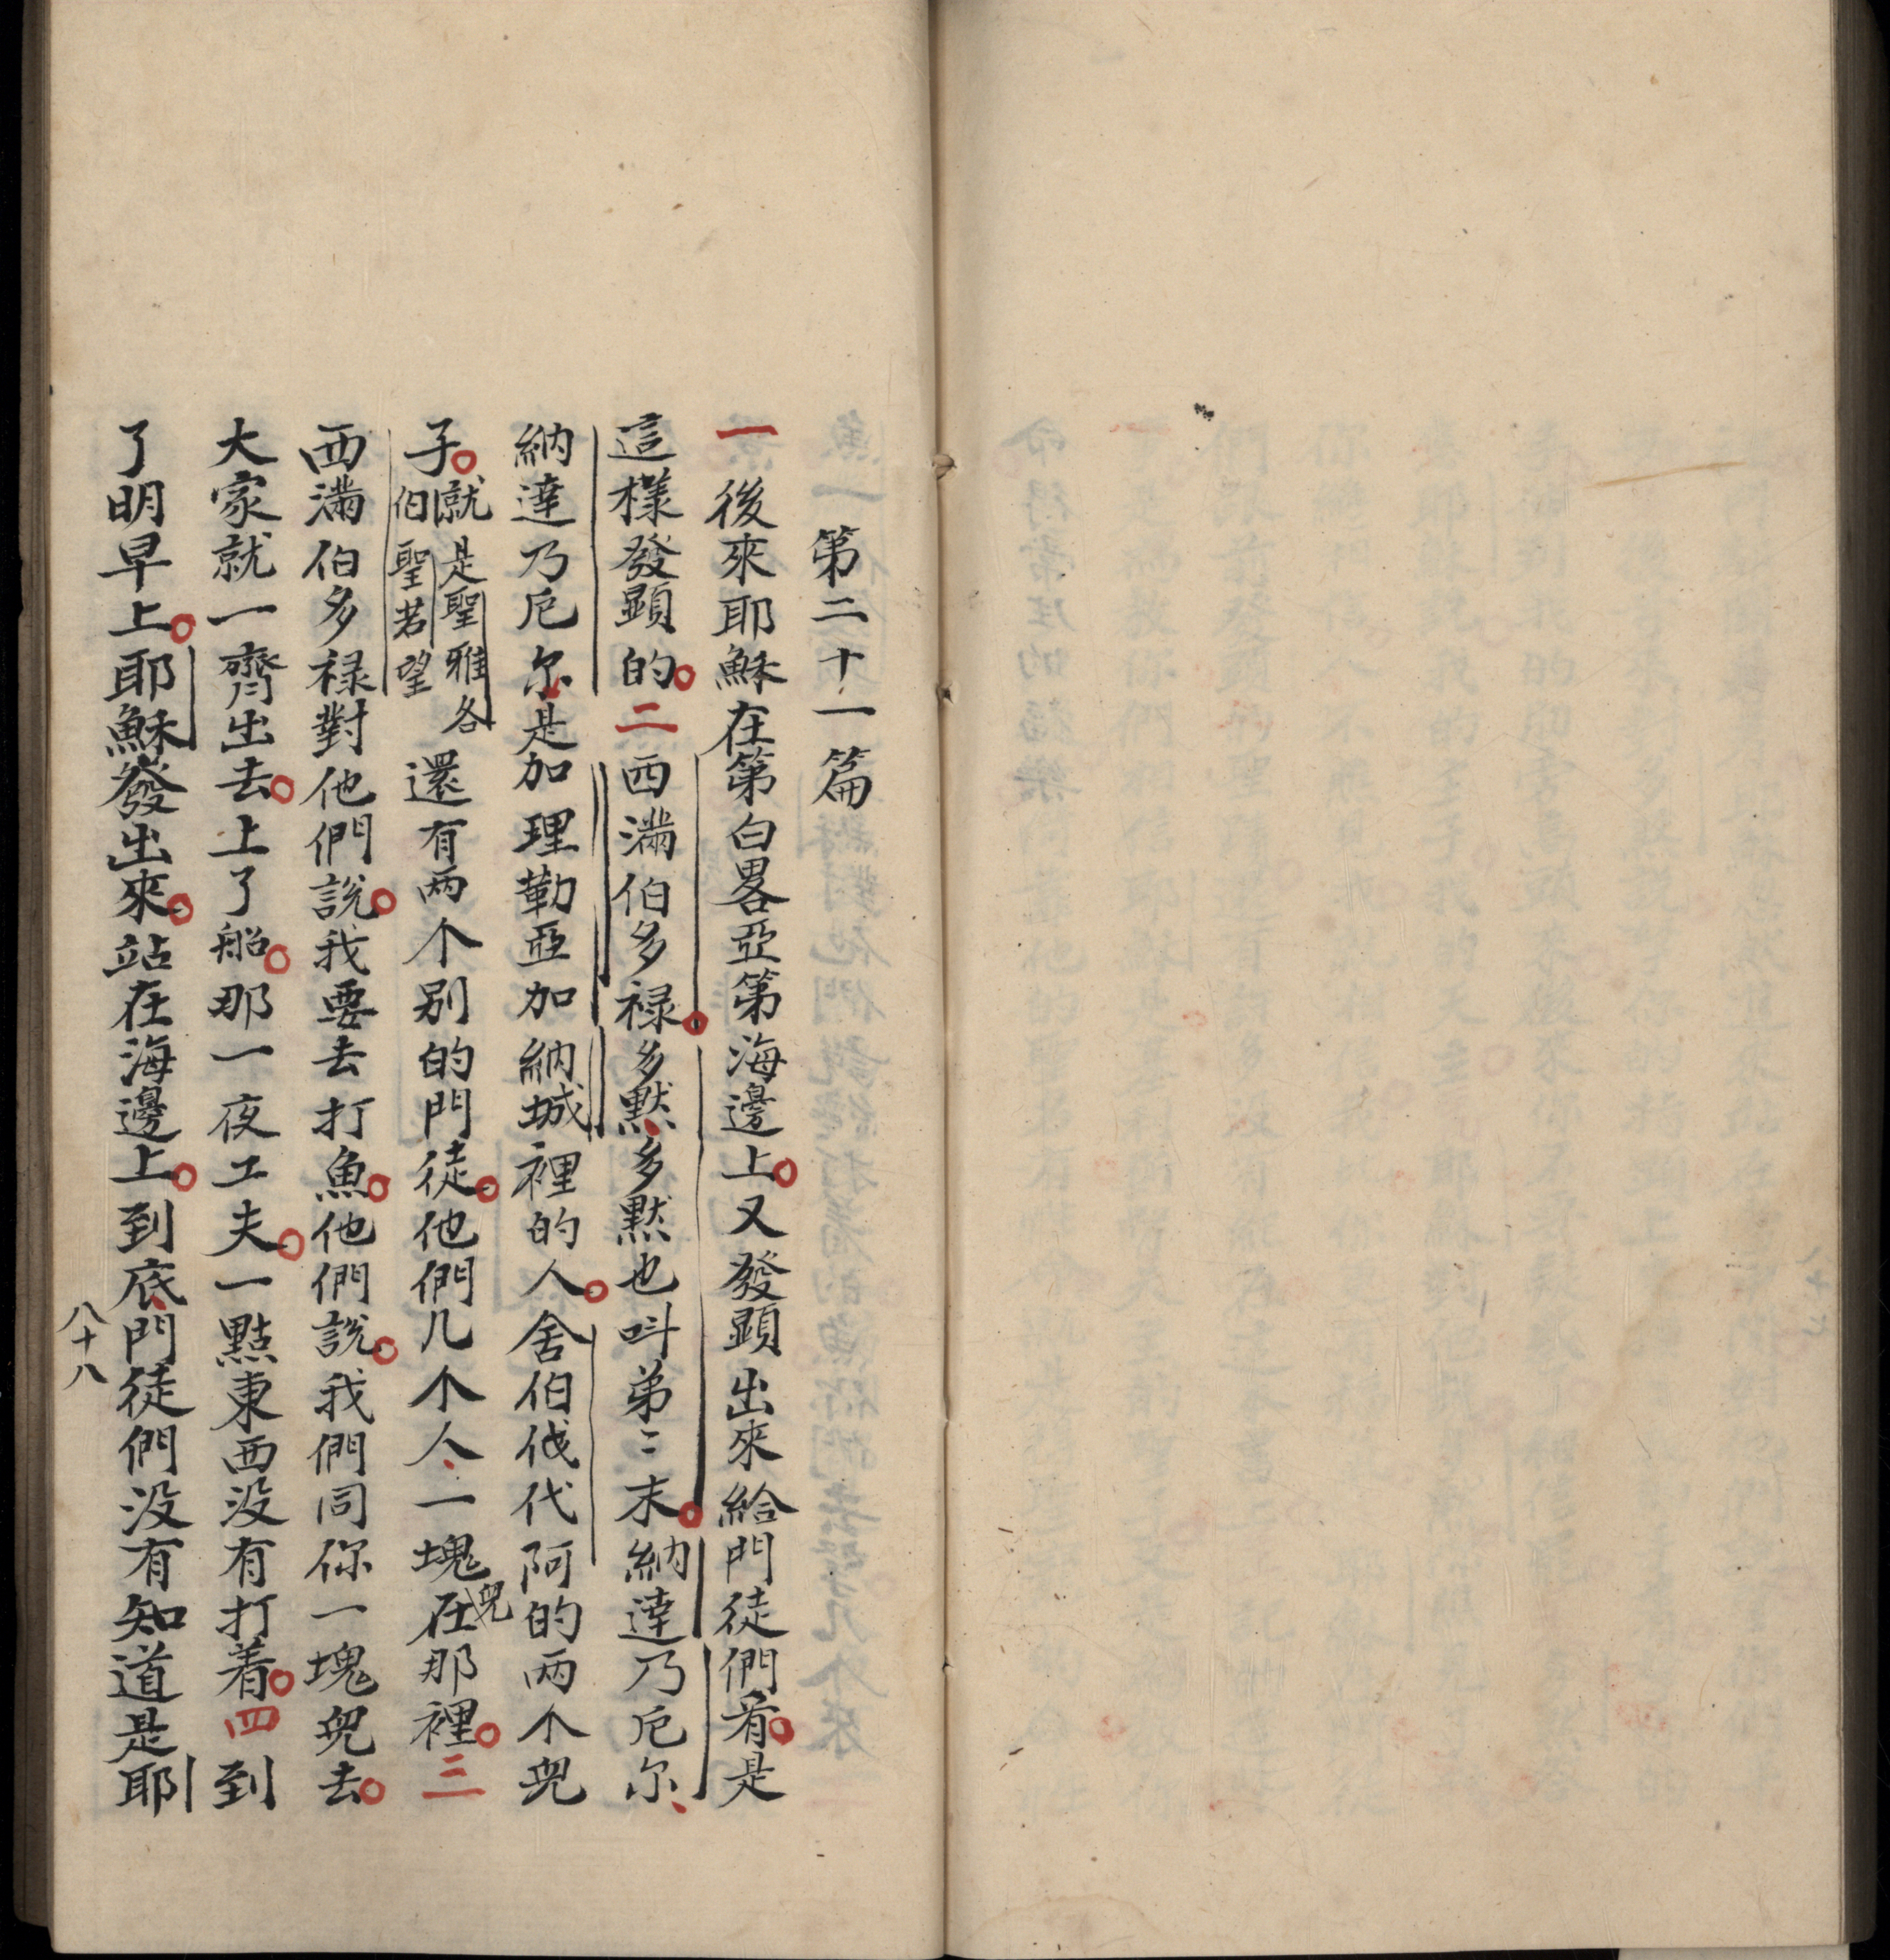 第二十一篇
一後來耶穌在第白畧亞第海邊上又發顕出來給門徒們看是
這樣發顕的二西满伯多禄多黙多黙也呌弟〻末納達乃厄尔
納達乃厄尔是加理勒亞加納城裡的人舍伯伐代阿的两个兒
子就是聖雅各伯聖若望還有两个别的門徒他們几个人一塊兒在那裡三
西满伯多禄對他們說我要去打魚他們說我們同你一塊兒去
大家就一齊出去上了船那一夜工夫一點東西没有打着四到
了明早上耶穌發出來站在海邊上到底門徒們没有知道是耶
八十八